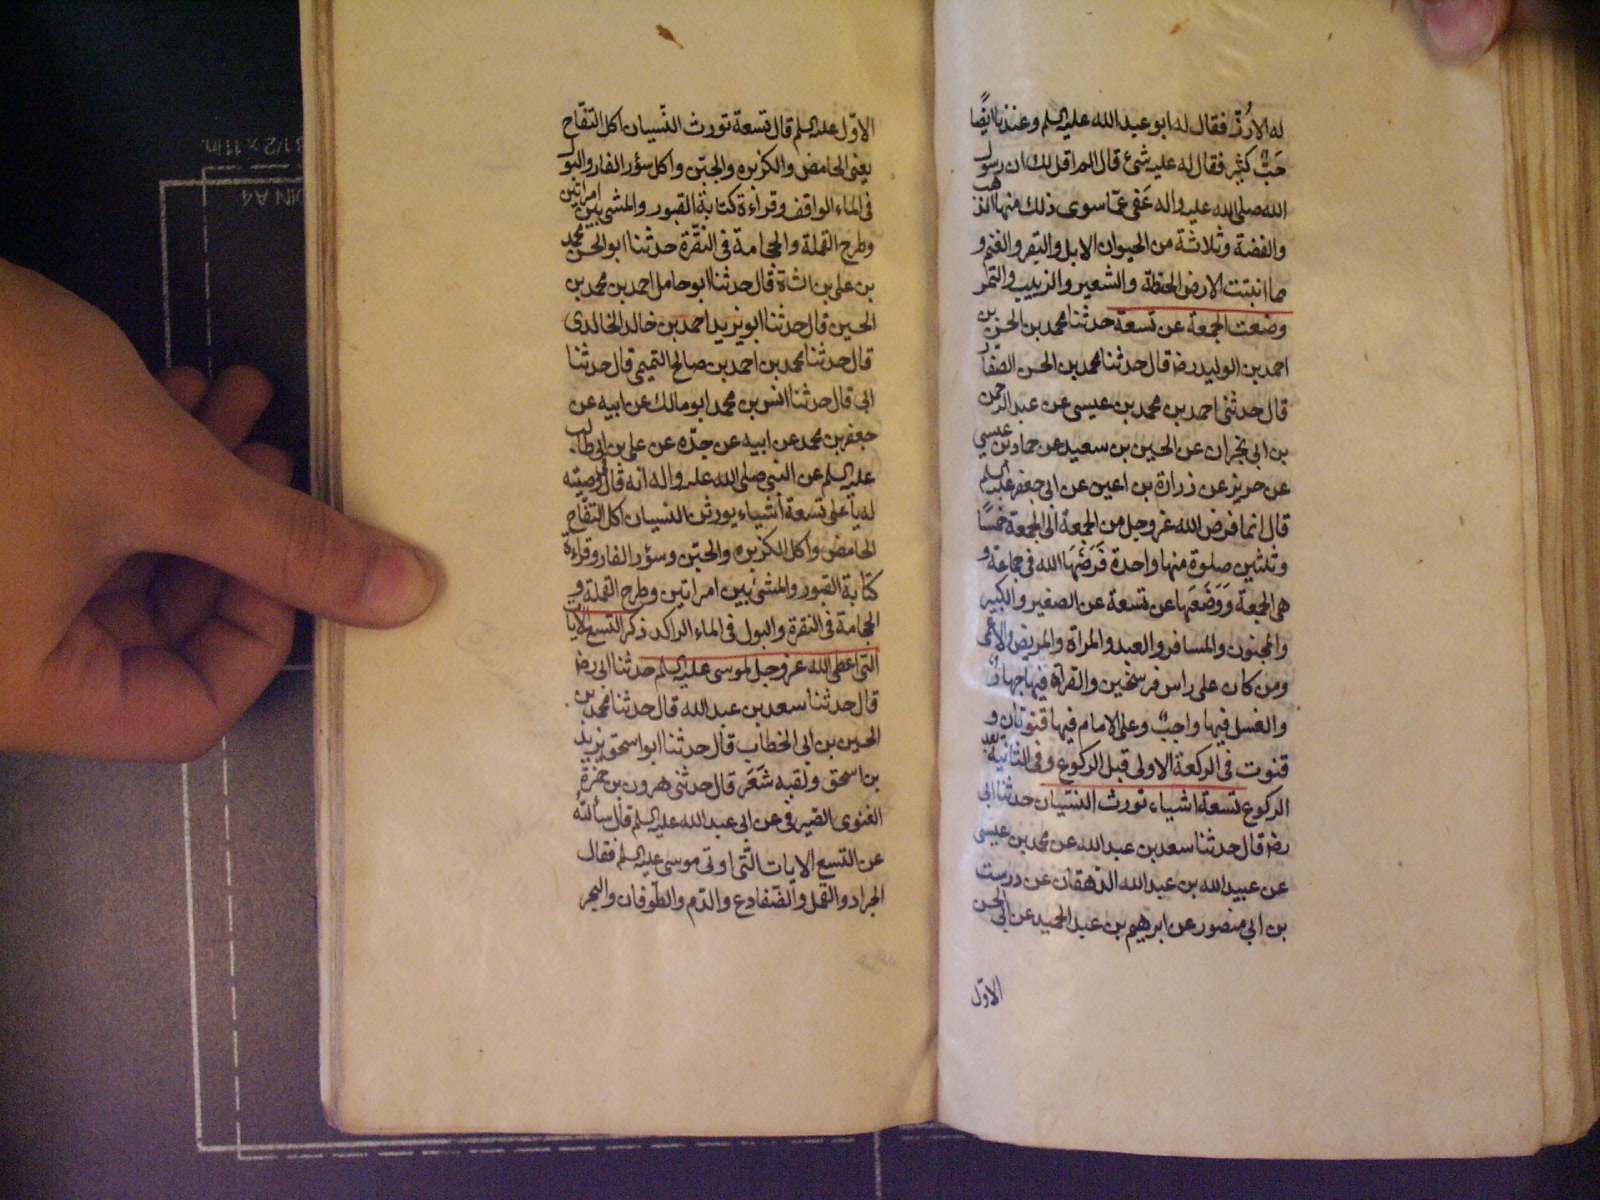 له الارُزّ فقال له ابو عبد الله عليه السلم وعندنا ايضًا
حَبٌّ كثير فقال له عليه شئ قال الم اقل لك ان رسول
الله صلى الله عليه واله عَفى عمّا سوى ذلك منها الذهب
والفضة وثلاثة من الحيوان الابل والبقر والغنم و
مما انبتت الارض الحنطة والشعير والزبيب والتمر
وضعت الجمعة عن تسعة حدثنا محمد بن الحسن بن
احمد بن الوليد رضه قال حدثنا محمد بن الحسن الصفّار
قال حدثنى احمد بن محمد بن عيسى عن عبد الرحمن
بن ابى نجران عن الحسين بن سعيد عن حماد بن عيسى
عن حريز عن زرارة بن اعين عن ابى جعفر عليه السلم
قال انما فرض الله عز وجل من الجمعة الى الجمعة خمسًا
وثلثين صلوة منها واحدة فَرَضَهَا الله فى جماعة و
هى الجمعة وَوَضَعَها عن تسعة عن الصغير والكبير
والمجنون والمسافر والعبد والمراة والمريض والاعمى
ومن كان على راس فرسخين والقراة فيها جهار
والغسل فيها واجبٌ وعلى الامام فيها قنوتان و
قنوت فى الركعة الاولى قبل الركوع وفى الثانية بعد
الركوع تسعة اشياء تورث النسيان حدثنا ابى
رضه قال حدثنا سعد بن عبد الله عن محمد بن عيسى
عن عبيد الله بن عبد الله الدهقان عن درست
بن ابى منصور عن ابرهيم بن عبد الحميد عن ابى الحسن
الاوّل
الاوّل عليه السلم قال تسعة تورث النسيان اكل التفّاح
يعنى الحامض والكزبره والجبن واكل سؤر الفار والبول
فى الماء الواقف وقراءة كتابة القبور والمشى بين امراتين
وطرح القملة والحجامة فى النقرة حدثنا ابو الحسن محمد
بن على بن الشاة قال حدثنا ابو حامد احمد بن محمد بن
الحسين قال حدثنا ابو يزيد احمد بن خالد الخالدى
قال حدثنا محمد بن احمد بن صالح التميمى قال حدثنا
ابى قال حدثنا انس بن محمد ابو مالك عن ابيه عن
جعفر بن محمد عن ابيه عن جدّه عن على بن ابى طالب
عليه السلم عن النبى صلى الله عليه واله انه قال فى وصيته
له يا على تسعة أشياء يورثن النسيان اكل التفّاح
الحامض واكل الكزبره والجبن وسؤر الفار وقراءة
كتابة القبور والمشى بين امراتين وطرح القملة و
الحجامة فى النقرة والبول فى الماء الراكد ذكر التسع الايات
التى اعطى الله عز وجل لموسى عليه السلم حدثنا ابى رضه
قال حدثنا سعد بن عبد الله قال حدثنا محمد بن
الحسين بن ابى الخطاب قال حدثنا ابو اسحق يزيد
بن اسحق ولقبه شَعَر قال حدثنى هرون بن حمزة
الغنوى الصيرفى عن ابى عبد الله عليه السلم قال سألته
عن التسع الايات التى اوتى موسى عليه السلم فقال
الجراد والقمل والضّفادع والدّم والطّوفان والبحر